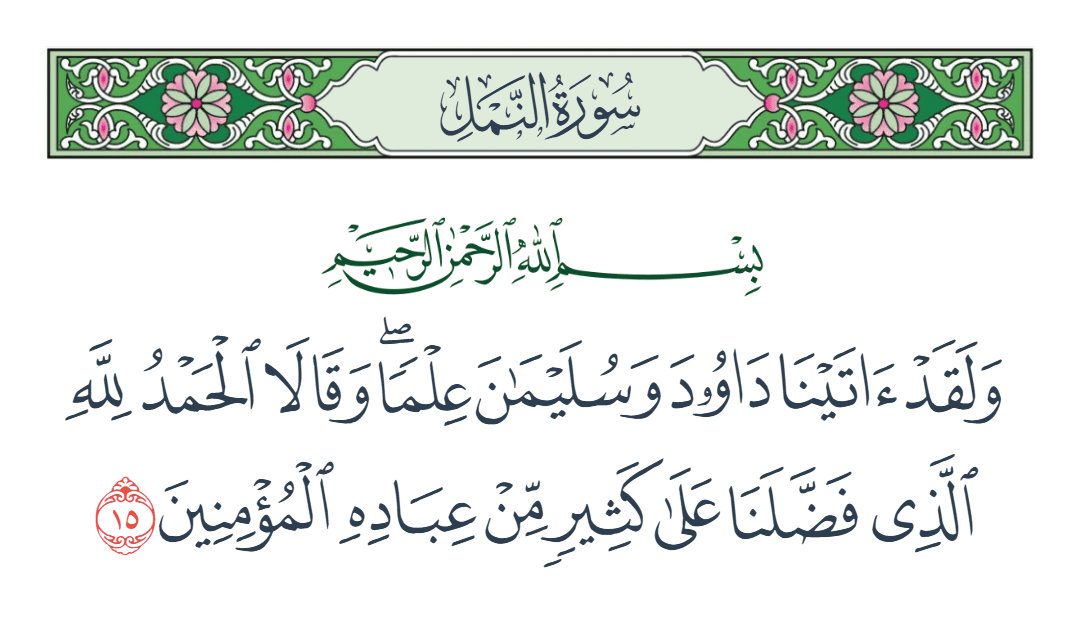 سُورَةُ النَّمۡلِ
بِسۡمِ ٱللَّهِ ٱلرَّحۡمَٰنِ ٱلرَّحِيمِ
وَلَقَدۡ ءَاتَيۡنَا دَاوُۥدَ وَسُلَيۡمَٰنَ عِلۡمٗاۖ وَقَالَا ٱلۡحَمۡدُ لِلَّهِ
ٱلَّذِي فَضَّلَنَا عَلَىٰ كَثِيرٖ مِّنۡ عِبَادِهِ ٱلۡمُؤۡمِنِينَ ١٥